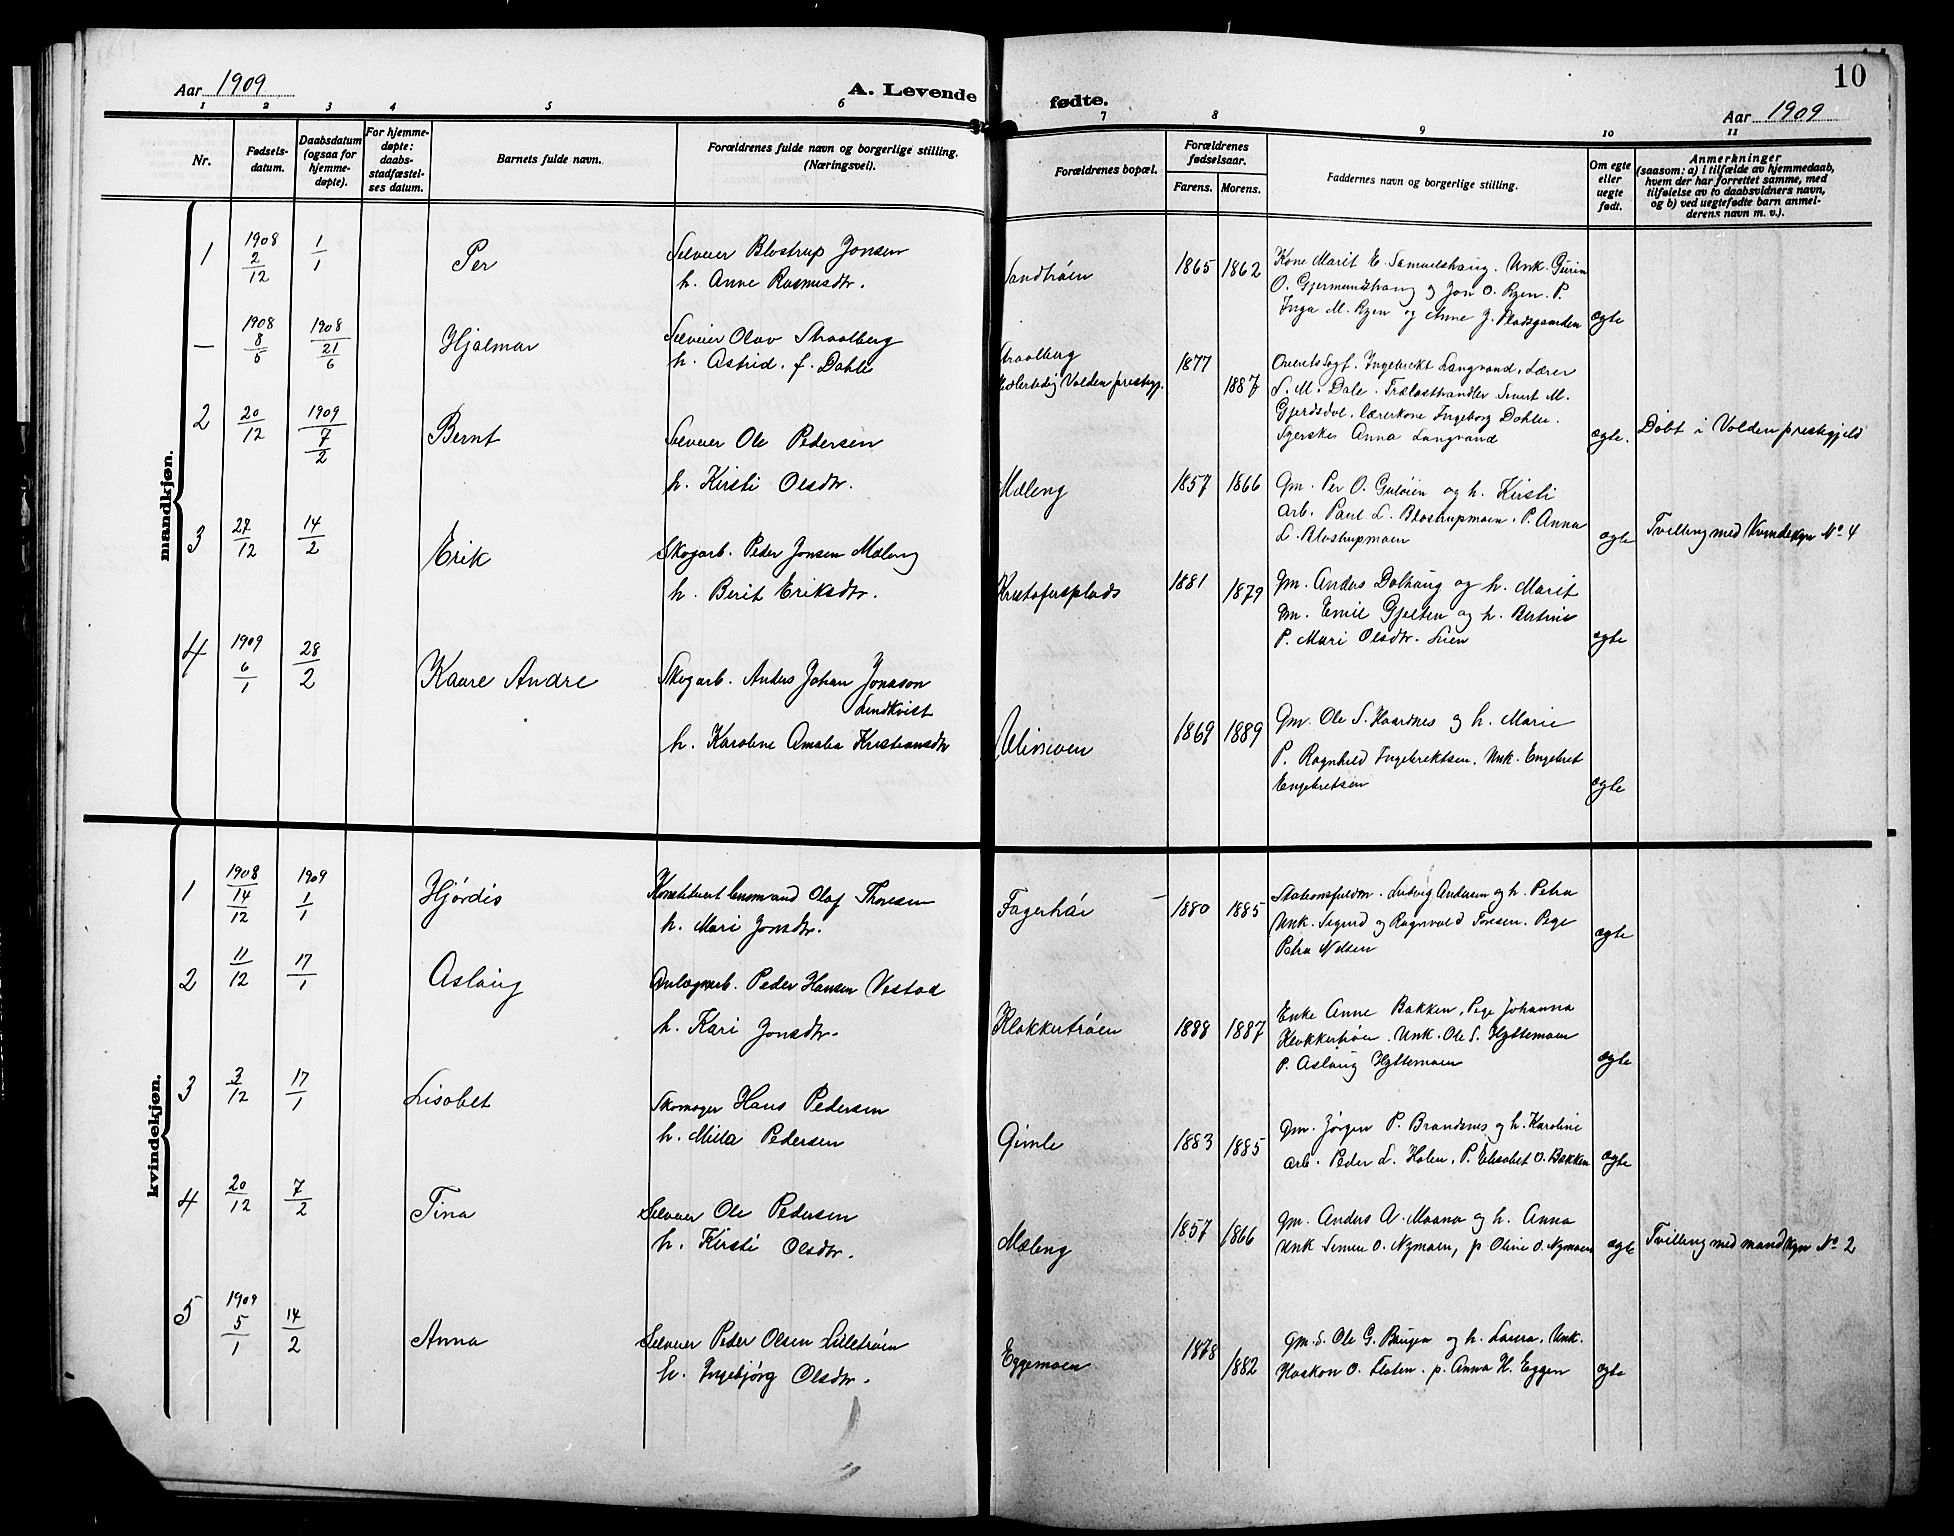 10
Aar 1909
A. Levende fødte.
Aar 1909
1 2 3 4 5 6 7 8 9 10 11
Nr.
Fødsels-
datum.
Daabsdatum
(ogsaa for
hjemme-
døpte).
For hjemme-
døpte:
daabs-
stadfæstel-
ses datum.
Barnets fulde navn.
Forældrenes fulde navn og borgerlige stilling.
(Næringsvei).
Forældrenes bopæl.
Forældrenes
fødselsaar.
Farens. Morens.
Faddernes navn og borgerlige stilling.
Om egte
eller
uegte
født.
Anmerkninger
(saasom: a) i tilfælde av hjemmedaab,
hvem der har forrettet samme, med
tilføielse av to daabsvidners navn,
og b) ved uegtefødte barn anmel-
derens navn m. v.).
mandkjøn.
1
1908
2/12
1/1
Per
Selveier Blostrup Jonsen
h. Anne Rasmusdtr.
Sandtrøen
1865 1862
Kone Marit E. Samuelshaug. Unk. Gurin
O. Gjermundshaug og Jon O. Ryen. P.
Inga M. Ryen og Anne J. Pladsgaarden
ægte
—
1908
8/5
1908
21/6
Hjalmar
Selveier Olav Straalberg
h. Astrid. f. Dahle
Straalberg
Midlertidig Volden prestegj.
1877 1887
Overretssagf. Ingebrikt Langvand. Lærer
S. M. Dale. Trælasthandler Sivert M.
Gjerdsdal. Lærerkone Ingeborg Dahle.
Syerske Anna Langvand
ægte.
Døbt i Volden prestegjeld
2
20/12
1909
7/2
Bernt
Selveier Ole Pedersen
h. Kirsti Olsdtr.
Mæleng
1857 1866
Gm. Per O. Guløien og h. Kirsti
Arb. Paul L. Blostrupmoen. P. Anna
L. Blostrupmoen
ægte
Tvilling med Kvindekjn No 4
3
27/12
14/2
Erik
Skogarb. Peder Jonsen Mæleng
h. Berit Eriksdtr.
Kristofersplads
1881 1879
Gm. Anders Dalhaug og h. Marit
Gm. Emil Gjelten og h. Bertine
P. Mari Olsdtr. Lien
ægte
4
1909
6/1
28/2
Kaare Andre
Skogarb. Anders Johan Jonason
Lindkvist
h. Karoline Amalia Kristiansdtr
1869 1889
Gm. Ole S. Haardnes og h. Marie
P. Ragnhild Ingebriktsen. Unk. Engebret
Engebretsen
ægte
kvindekjøn.
1
1908
14/12
1909
1/1
Hjørdis
Konstitueret Lensmand Olaf Thoresen
h. Mari Jonsdtr.
Fagerhøi
1880 1885
Stationsfuldm. Ludvig Andersen og h. Petra
Unk. Sigurd og Ragnvald Toresen. Pige
Petra Nilsen
ægte
2
11/12
17/1
Aslaug
Anlægsarb. Peder Hansen Vestad
h. Kari Jonsdtr.
Klokkertrøen
1888 1887
Enke Anne Bakken, Pige Johanna
Klokkertrøen. Unk. Ole S. Hyttemoen
P. Aslaug Hyttemoen
ægte
3
3/12
17/1
Lisabet
Skomager Hans Pedersen
h. Milla Pedersen
Gimle
1883 1885
Gm. Jørgen P. Brandsnes og h. Karoline
Arb. Peder L. Holen, P. Elisabet O. Bakken
ægte
4
20/12
7/2
Tina
Selveier Ole Pedersen
h. Kirsti Olsdtr.
Mæleng
1857 1866
Gm. Anders A. Moana og h. Anna
Unk Simen O. Nymoen, p. Oline O. Nymoen
ægte
Tvilling med mandkjn No 2
5
1909
5/1
14/2
Anna
Selveier Peder Olsen Lilletrøen
h. Ingebjørg Olsdtr.
Eggemoen
1878 1882
Gm. S. Ole G. Bangen og h. Laura, Unk.
Haakon O. Floten. p. Anna H. Eggen
ægte